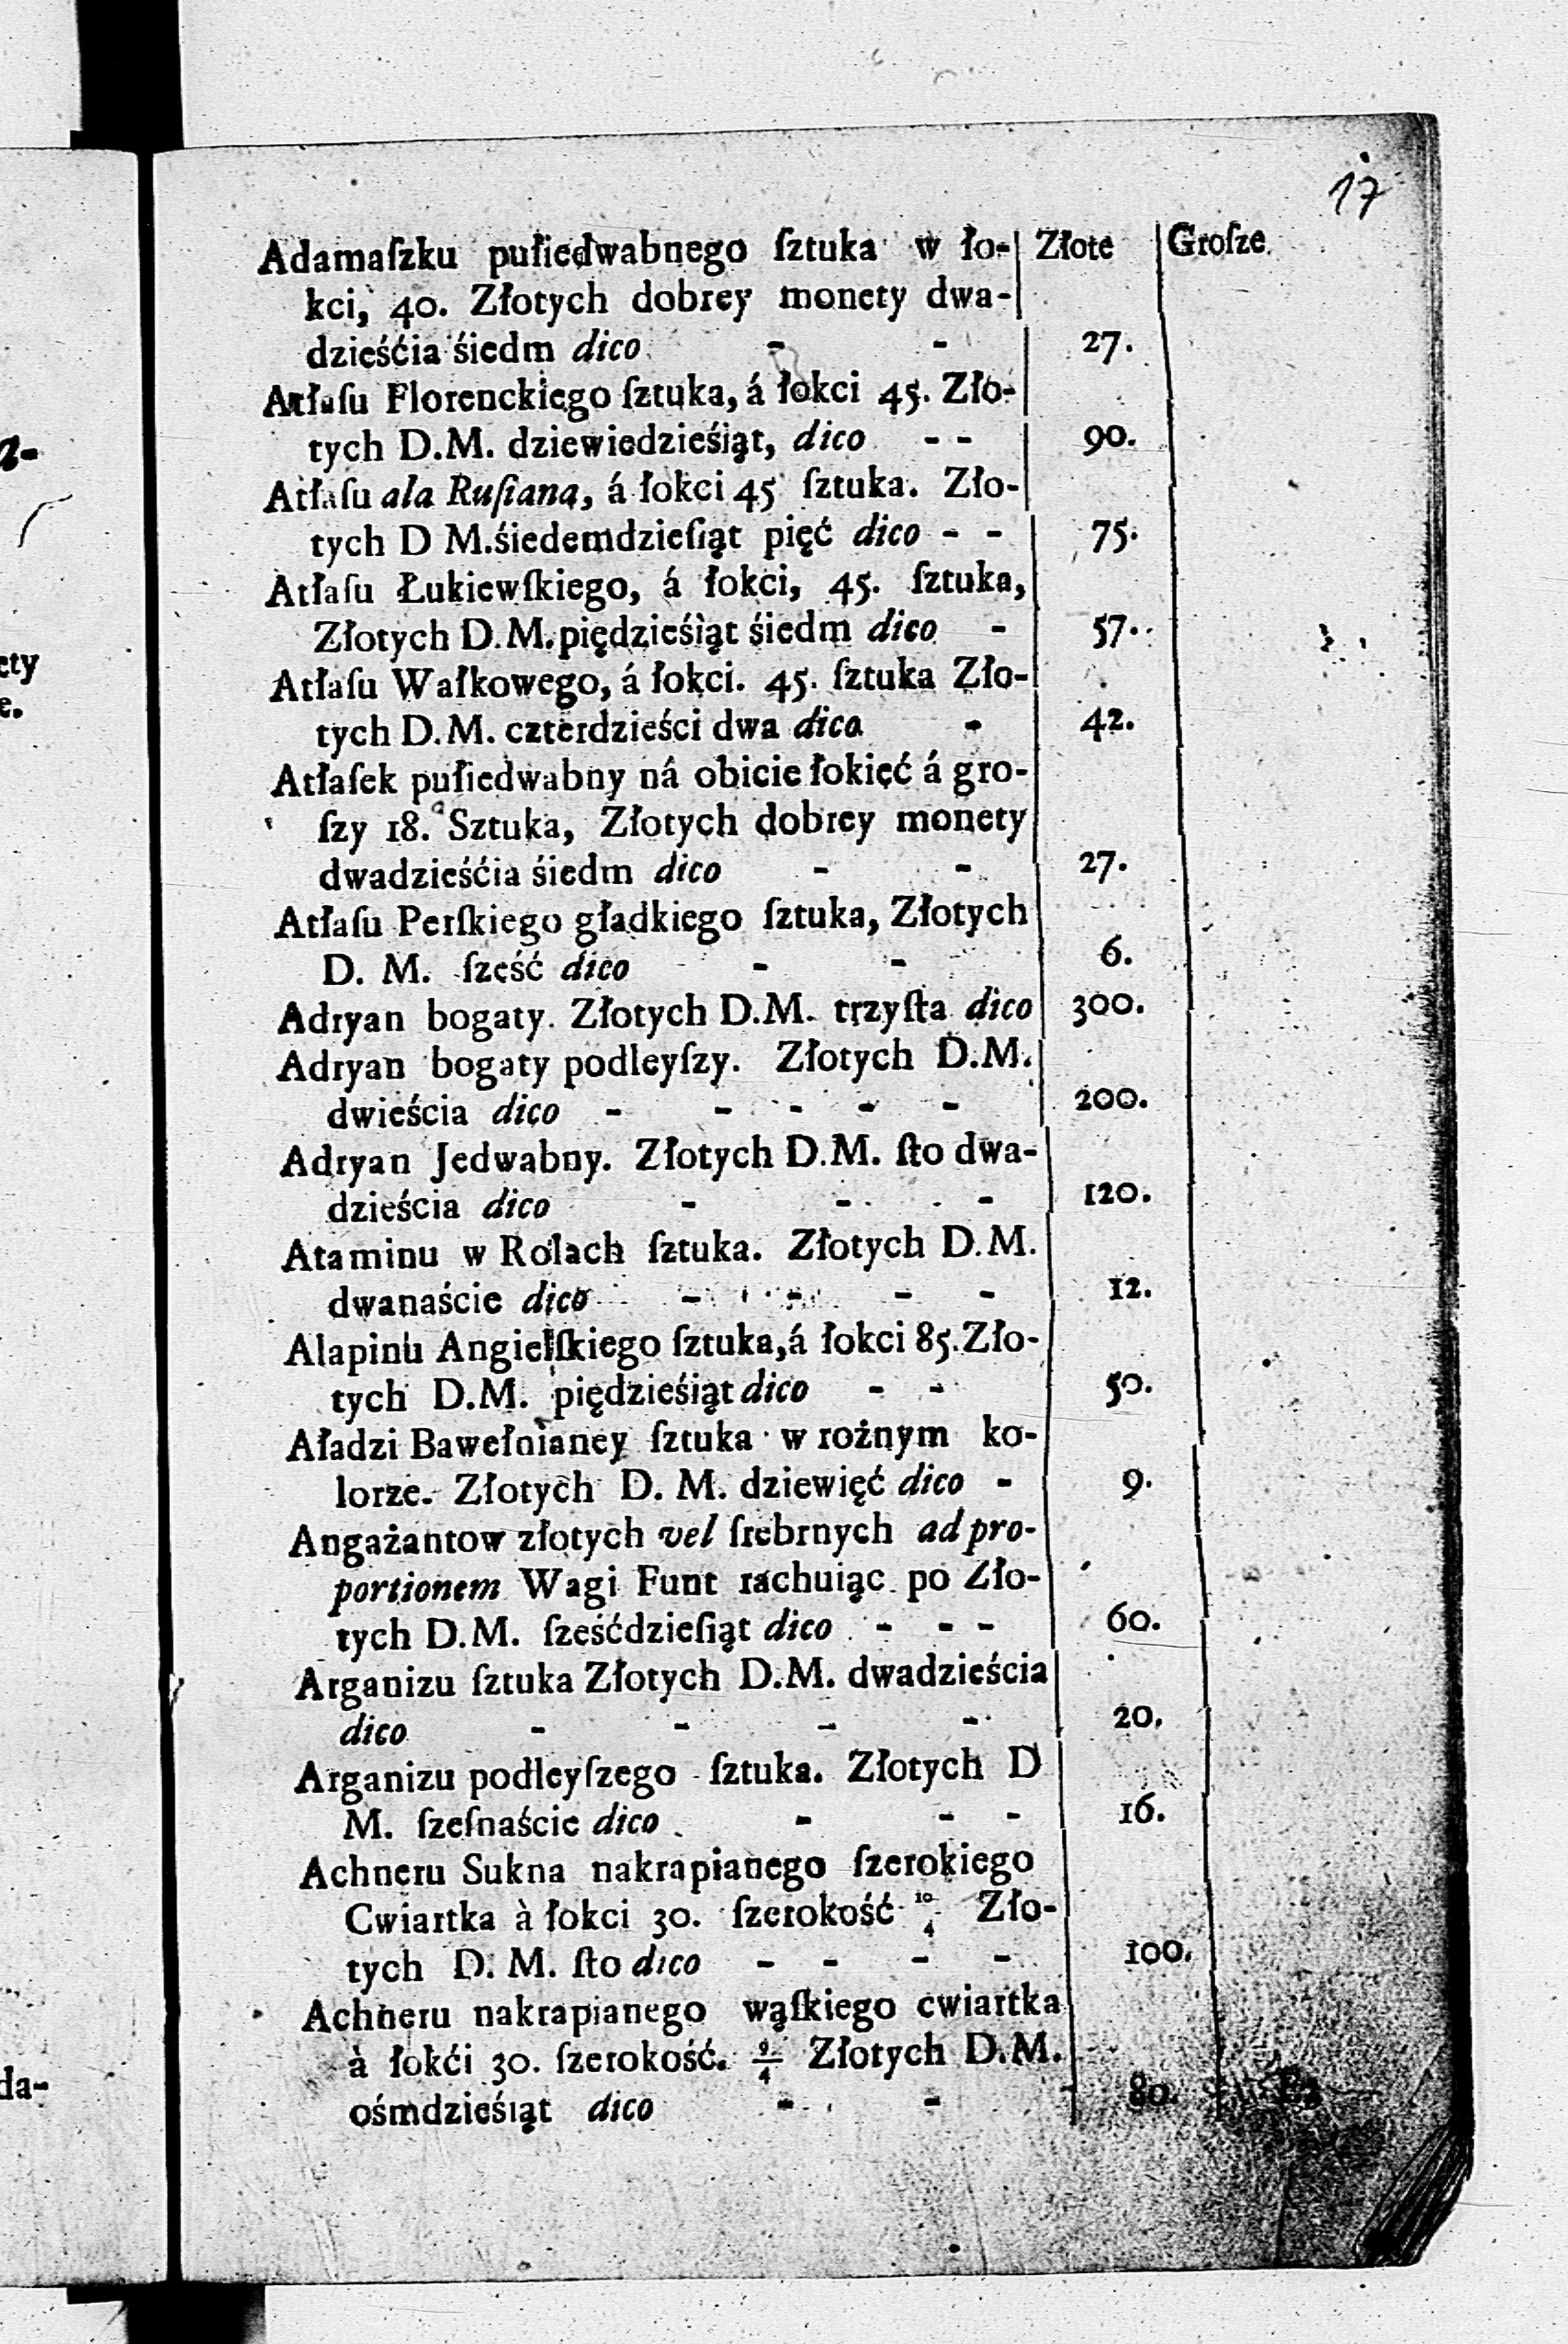 17
Adamaſzku pułiedwabnego ſztuka w ło- Złote Groſze
kci, 40. Złotych dobrey monety dwa-
dzieśćia śiedm dico - - 27.
Atłaſu Florenckiego ſztuka, á łokci 45. Zło-
tych D.M. dziewiedzieśiąt, dico - - 90.
Atłaſu ala Ruſianą, á łokci 45 ſztuka. Zło-
tych D M.śiedemdzieſiąt pięć dico - - 75.
Atłaſu Łukiewſkiego, á łokci, 45. ſztuka,
Złotych D.M. piędzieśiąt śiedm dico - 57.
Atłaſu Wałkowego, á łokci. 45. ſztuka Zło-
tych D.M. czterdzieści dwa dico - 42.
Atłaſek pułiedwabny ná obicie łokięć á gro-
ſzy 18. Sztuka, Złotych dobrey monety
dwadzieśćia śiedm dico - - 27.
Atłaſu Perſkiego gładkiego ſztuka, Złotych
D. M. ſześć dico - - 6.
Adryan bogaty. Złotych D.M. trzyſta dico 300.
Adryan bogaty podleyſzy. Złotych D.M.
dwieścia dico - - - - - 200.
Adryan Jedwabny. Złotych D.M. ſto dwa-
dzieścia dico - - - 120.
Ataminu w Rolach ſztuka. Złotych D.M.
dwanaście dico - - - - 12.
Alapinu Angielſkiego ſztuka, á łokci 85. Zło-
tych D.M. piędzieśiąt dico - - 50.
Aładzi Bawełnianey ſztuka w rożnym ko-
lorze. Złotych D. M. dziewięć dico - 9.
Angażantow złotych vel ſrebrnych ad pro-
portionem Wagi Funt rachuiąc po Zło-
tych D.M. ſześćdzieſiąt dico - - - 60.
Arganizu ſztuka Złotych D.M. dwadzieścia
dico - - - - 20.
Arganizu podleyſzego ſztuka. Złotych D
M. ſzeſnaście dico - - - 16.
Achneru Sukna nakrapianego ſzerokiego
Cwiartka à łokci 30. ſzerokość 10/4 Zło-
tych D. M. ſto dico - - - - 100.
Achneru nakrapianego wąſkiego cwiartka
à łokći 30. ſzerokość. 9/4 Złotych D.M.
ośmdzieśiąt dico - - 80.
a-
ety
e.
da-